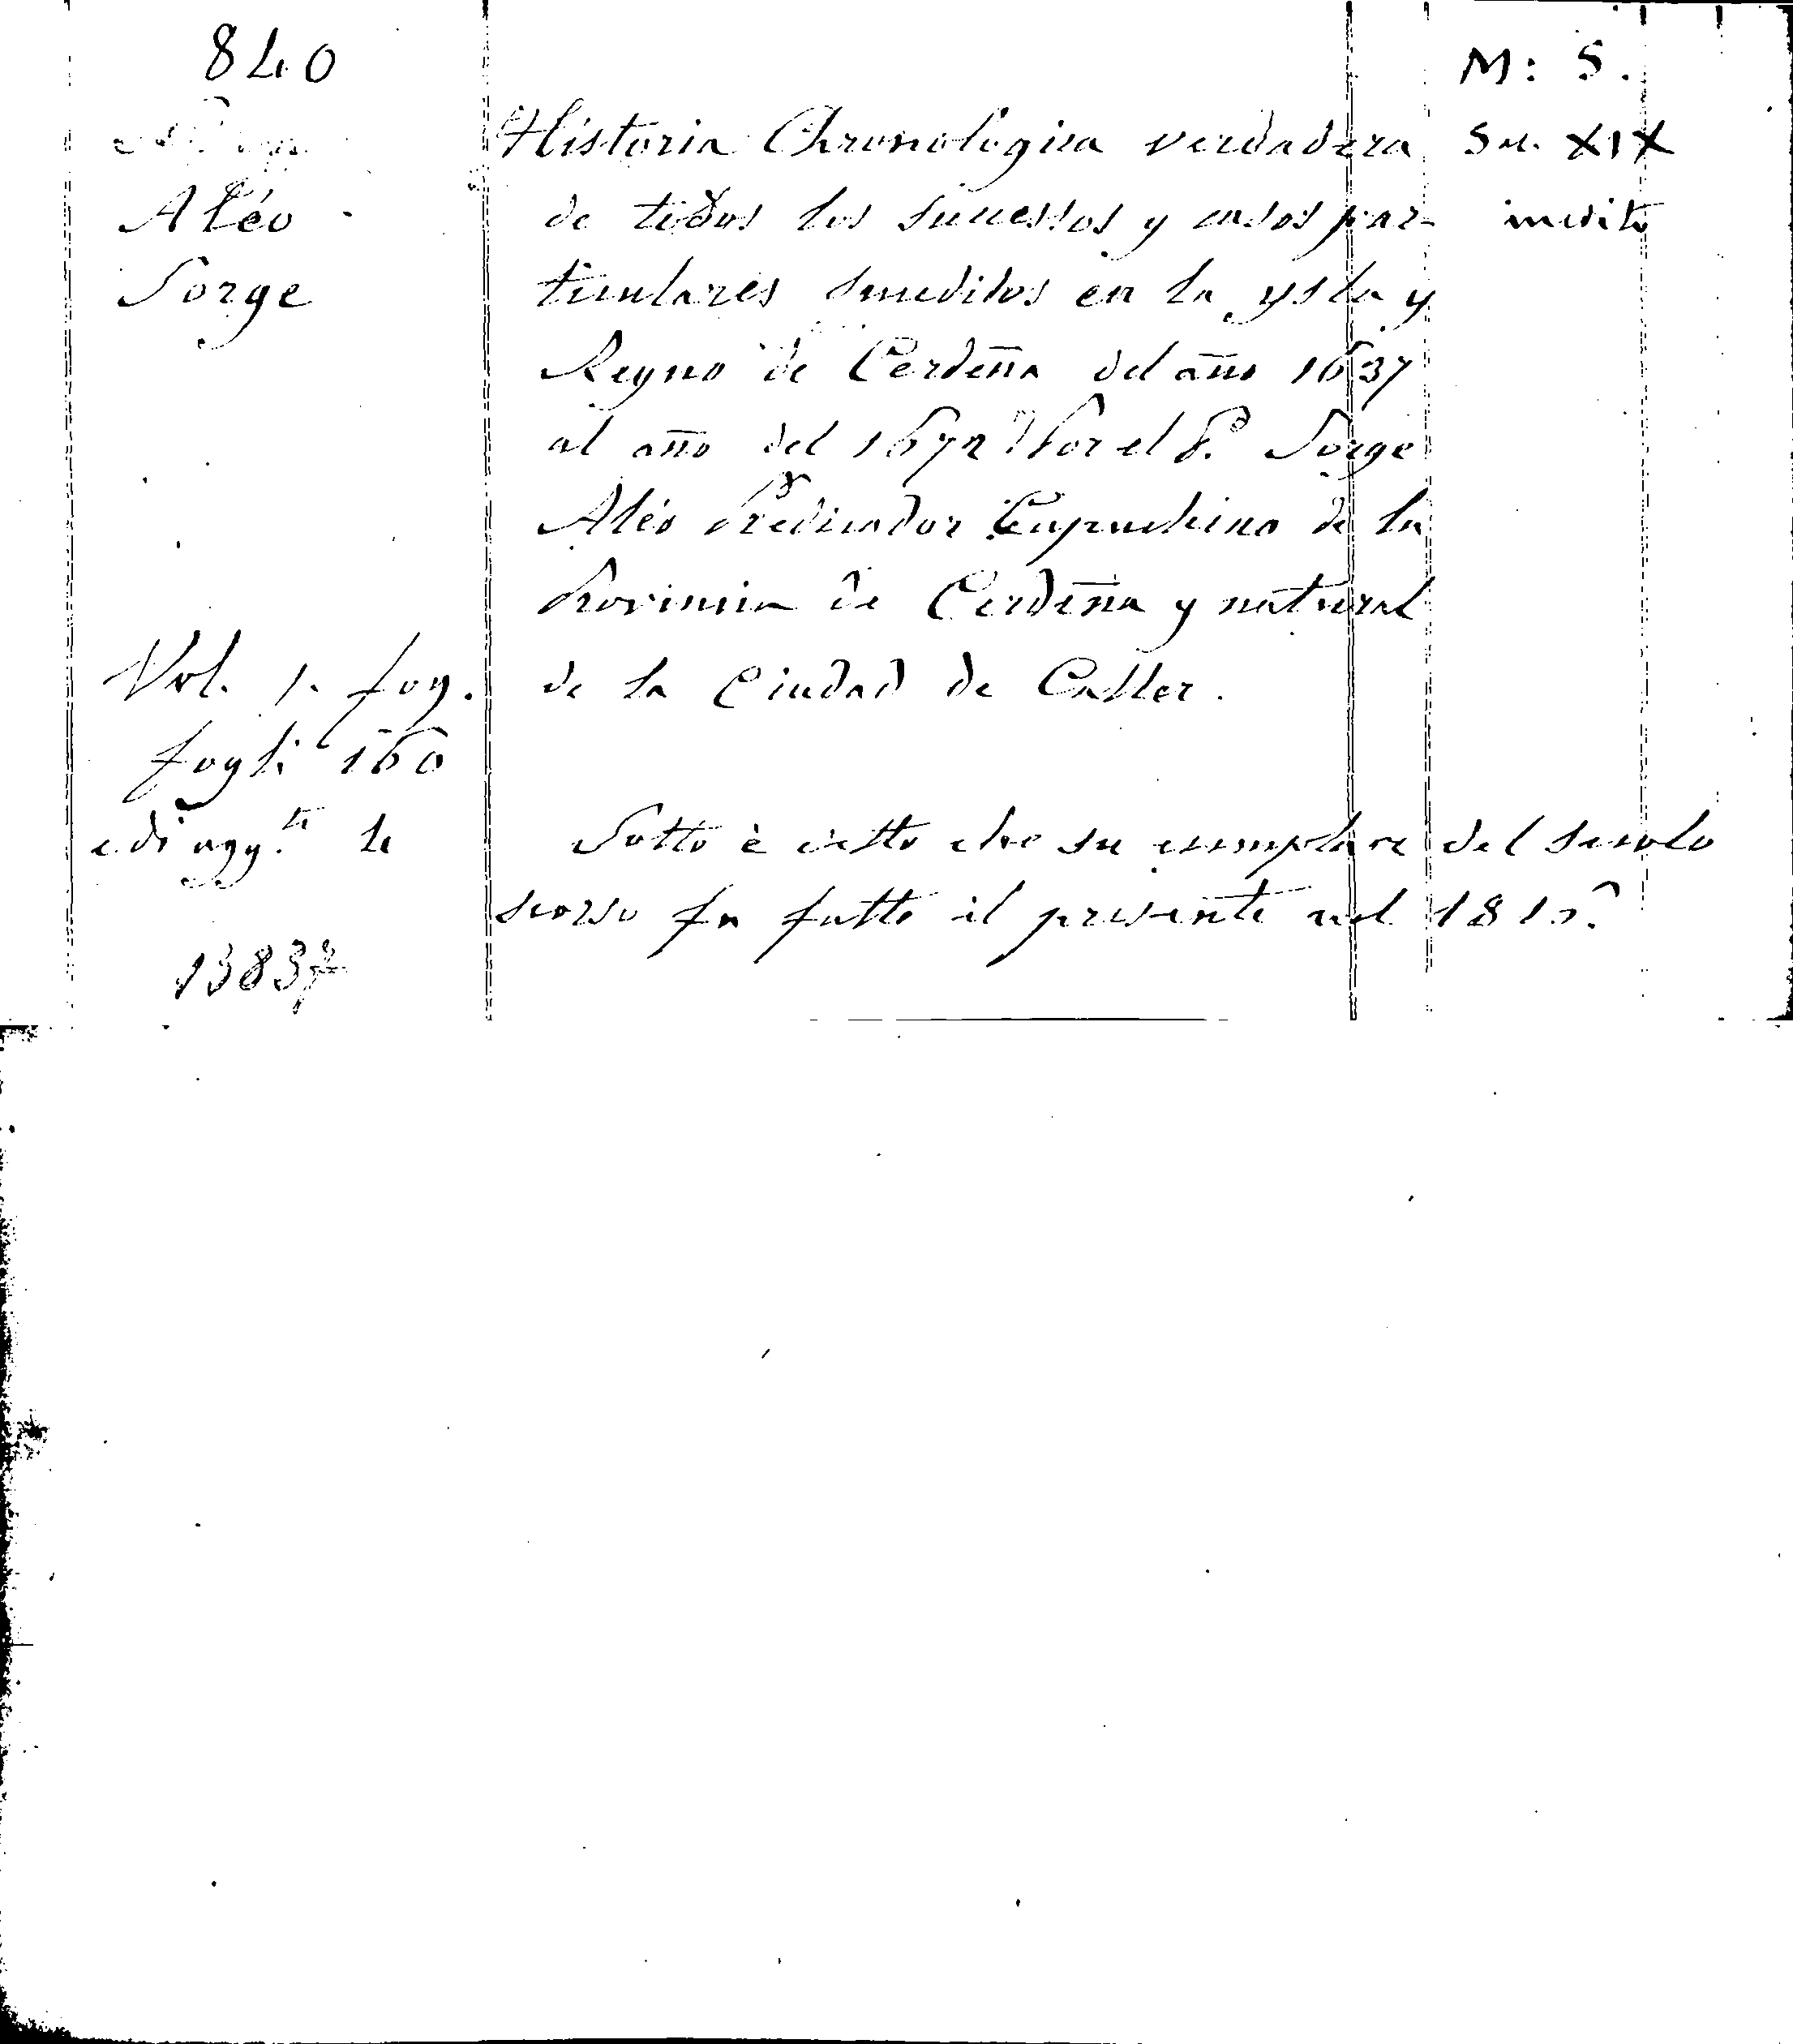 840
M: S.
Historia Chronologica verdadera
Sec. XIX
Aléo
de todos los sucessos y casos par-
inedito
Jorge
ticulares sucedidos en la ysla y
Reyno de Cerdeña del año 1637
al año del 1672 Por el P.e Jorge
Aléo Predicador Capuchino de la
Provincia de Cerdeña y natural
Vol. 1. fog.
de la Ciudad de Caller.
fogli 160
e di agg.ta 4
Sotto è detto che su esemplare del secolo
scorso fu fatto il presente nel 181
13837